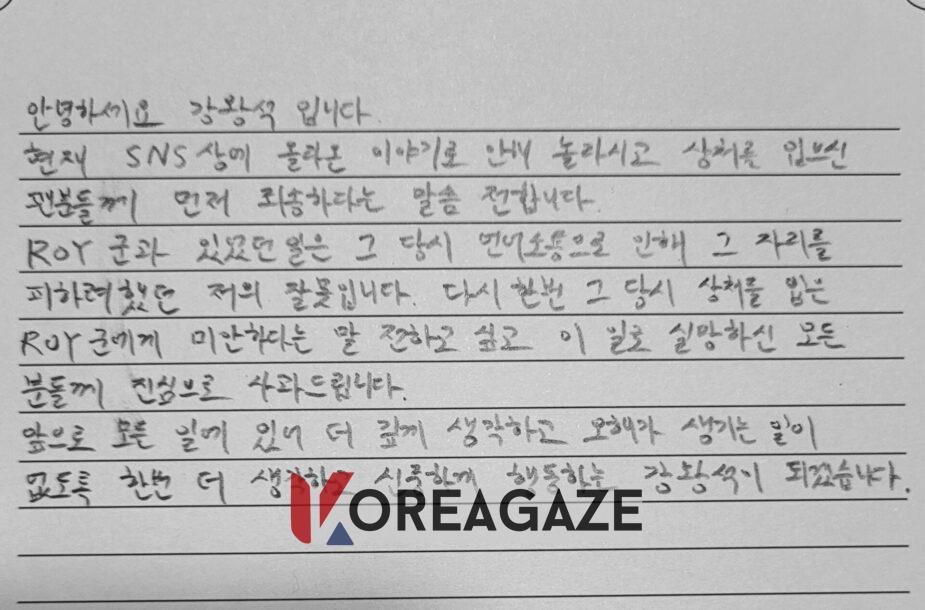 안녕하세요 강왕석 입니다.
현재 SNS상에 올라온 이야기로 인해 놀라시고 상처를 입으신
팬분들께 먼저 죄송하다는 말씀 전합니다.
ROY 군과 있었던 일은 그 당시 언어소통으로 인해 그 자리를
피하려했던 저의 잘못입니다. 다시 한번 그 당시 상처를 입은
ROY 군에게 미안하다는 말 전하고 싶고 이 일로 실망하신 모든
분들께 진심으로 사과드립니다.
앞으로 모든 일에 있어 더 깊게 생각하고 오해가 생기는 일이
없도록 한번 더 생각하고 신중하게 행동하는 강왕석이 되겠습니다.
KOREAGAZE